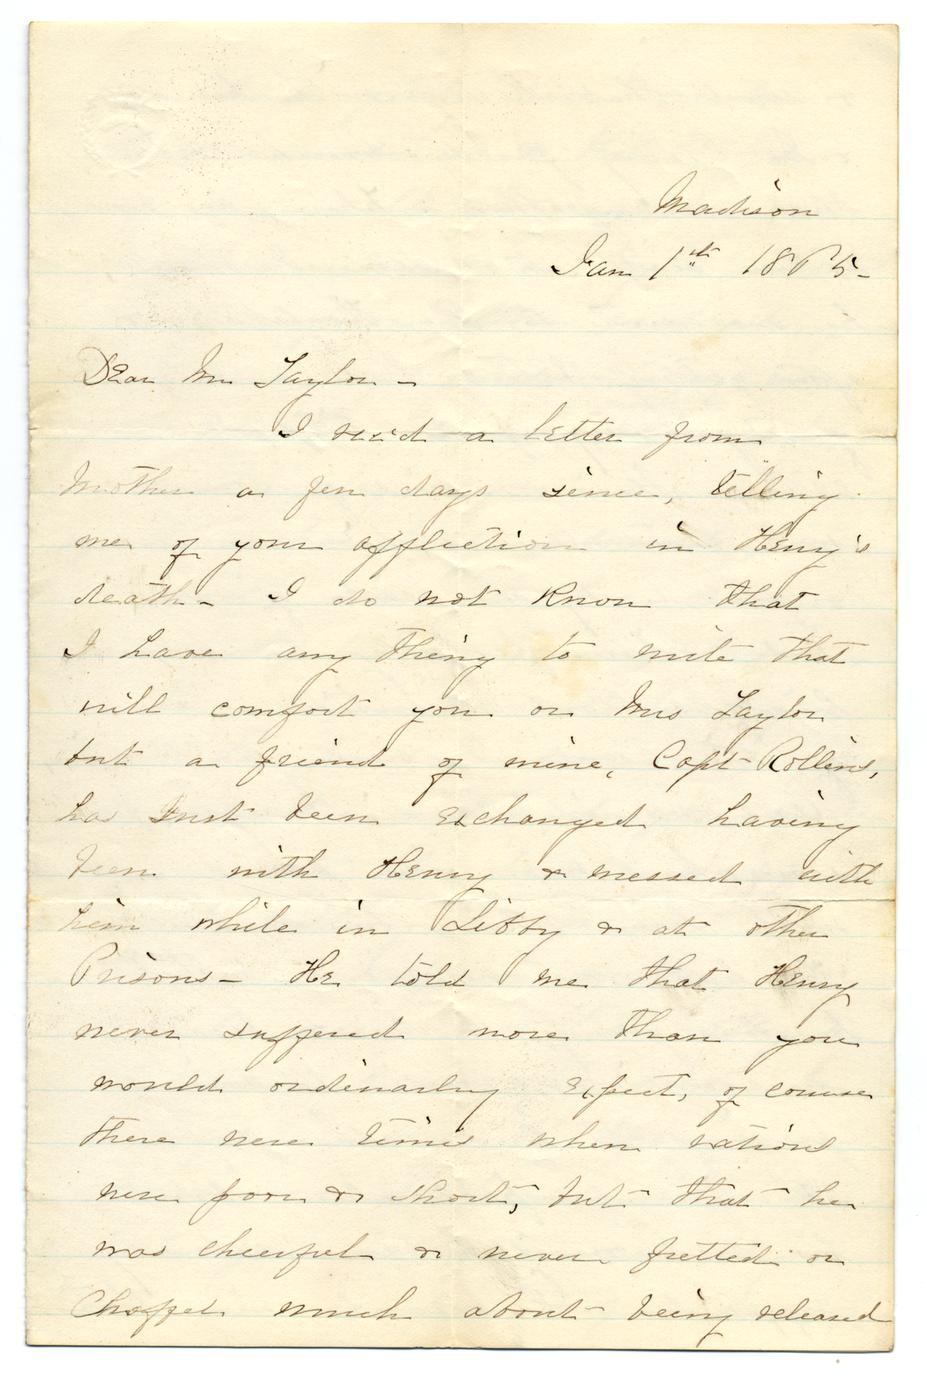 Madison
Jan 1st 1865-
Dear Mr Taylor -
I recd a letter from
Mother a few days since, telling
me of your affliction in Henry's
death - I do not know that
I have any thing to write that
will comfort you or Mrs Taylor
but a friend of mine, Capt Rollins,
has Just been exchanged having
been with Henry & messed with
him while in Libby & at other
Prisons - He told me that Henry
never suffered more than you
would ordinarly expect, of course
there were times when rations
were poor & short, but that he
was cheerful & never fretted or
Chaffed much about being released